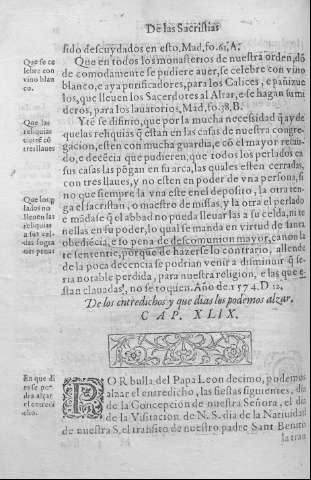 De las Sacristias
sido descuydados en esto, Mad, fo. 61, A.
Que se ce
lebre con
vino blan
co.
Que en todos los monasterios de nuestra orden, dō
de comodamente se pudiere auer, se celebre con vino
blanco, e aya purificadores, para los Calices, e pañizue
los, que lleuen los Sacerdotes al Altar, e se hagan sume
deros, para los lauatorios, Mad, fo. 38, B.
Que las
reliquias
esten cō
tres llaues
Ytē se difinio, que por la mucha necessidad q̄ ay de
que las reliquias q̄ estan en las casas de nuestra congre
gacion, esten con mucha guardia, e cō el mayor recau-
do, e decēcia que pudieren, que todos los perlados en
sus casas las pōgan en su arca, las quales esten cerradas,
con tres llaues, y no esten en poder de vna persona, si
no que siempre la vna este en el deposito, la otra ten-
Que los p̄
lados no
lleuen las
reliquias
a sus cel-
das so gra
ues penas
ga el sacristan, o maestro de missas, y la otra el perlado
e mādase q̄ el abbad no pueda lleuar las a su celda, ni te
nellas en su poder, lo qual se manda en virtud de santa
obediēcia, e so pena de descomunion mayor, canon la
te sententie, porque de hazerse lo contrario, allende
de la poca decencia se podrian venir a disminuir q̄ se-
ria notable perdida, para nuestra religion, e las que e-
stan clauadas, no se toquen. Año de. 1574. D 12.
De los entredichos y que dias los podemos alzar.
CAP. XLIX.
En que di
as se po-
dra alzar
el entredi
cho.
POR bulla del Papa Leon decimo, podemos
alzar el entredicho, las fiestas siguientes, dia
de la Concepcion de nuestra Señora, el dia
de la Visitacion de N. S. dia de la Natiuidad
de nuestra S, el transito de nuestro padre Sant Benito
la tras